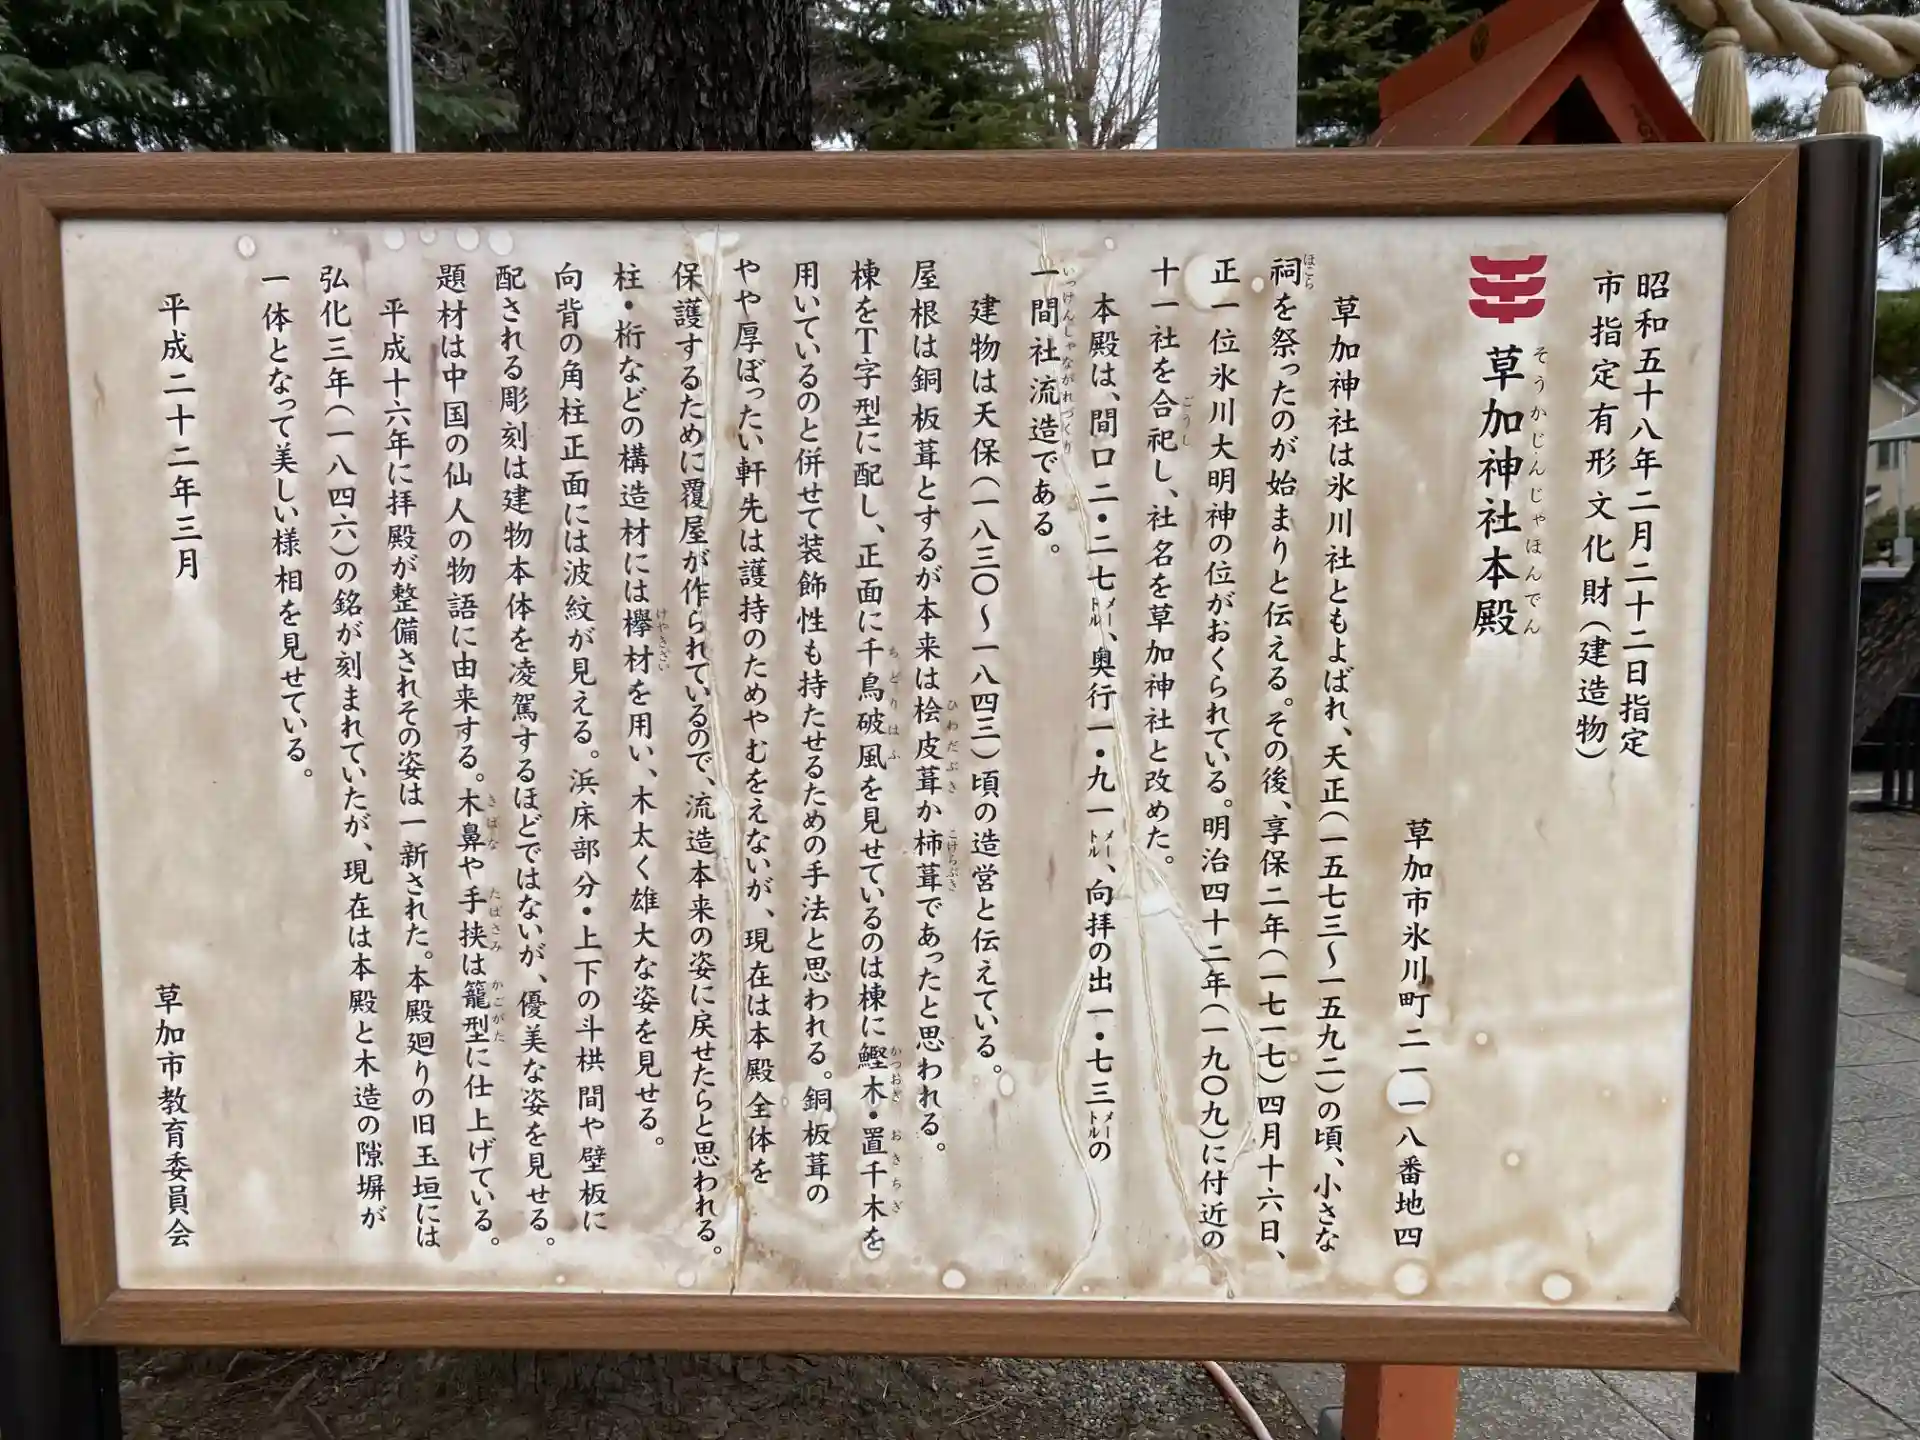 昭和五十八年二月二十二日指定
市指定有形文化財（建造物）
草加神社本殿
そうかじんじゃほんでん
草加市氷川町二一一八番地四
草加神社は氷川社ともよばれ、天正（一五七三～一五九二）の頃、小さな
祠を祭ったのが始まりと伝える。その後、享保二年（一七一七）四月十六日、
ほこら
正一位氷川大明神の位がおくられている。明治四十二年（一九〇九）に付近の
十一社を合祀し、社名を草加神社と改めた。
ごうし
本殿は、間口二・二七メートル、奥行一・九一メートル、向拝の出一・七三メートルの
一間社流造である。
いっけんしゃながれづくり
建物は天保（一八三〇～一八四三）頃の造営と伝えている。
屋根は銅板葺とするが本来は桧皮葺か柿葺であったと思われる。
ひわだぶき こけらぶき
棟をT字型に配し、正面に千鳥破風を見せているのは棟に鰹木・置千木を
ちどりはふ かつおぎ おきちぎ
用いているのと併せて装飾性も持たせるための手法と思われる。銅板葺の
やや厚ぼったい軒先は護持のためやむをえないが、現在は本殿全体を
保護するために覆屋が作られているので、流造本来の姿に戻せたらと思われる。
柱・桁などの構造材には欅材を用い、木太く雄大な姿を見せる。
けやきざい
向背の角柱正面には波紋が見える。浜床部分・上下の斗栱間や壁板に
配される彫刻は建物本体を凌駕するほどではないが、優美な姿を見せる。
題材は中国の仙人の物語に由来する。木鼻や手挟は籠型に仕上げている。
きばな たばさみ かごがた
平成十六年に拝殿が整備されその姿は一新された。本殿廻りの旧玉垣には
弘化三年（一八四六）の銘が刻まれていたが、現在は本殿と木造の隙塀が
一体となって美しい様相を見せている。
平成二十二年三月
草加市教育委員会